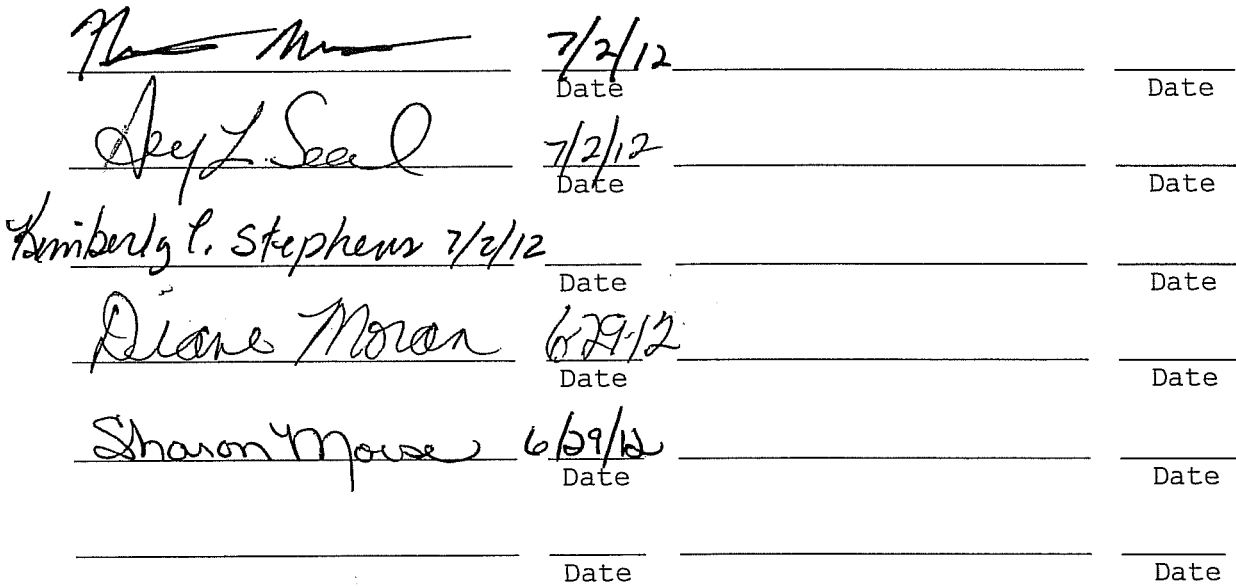 7/2/12
Date Date
L. Seel 7/2/12
Date Date
Kimberly P. Stephens 7/2/12
Date Date
Diane Moran 6-29-12
Date Date
Sharon Morse 6/29/12
Date Date
Date Date